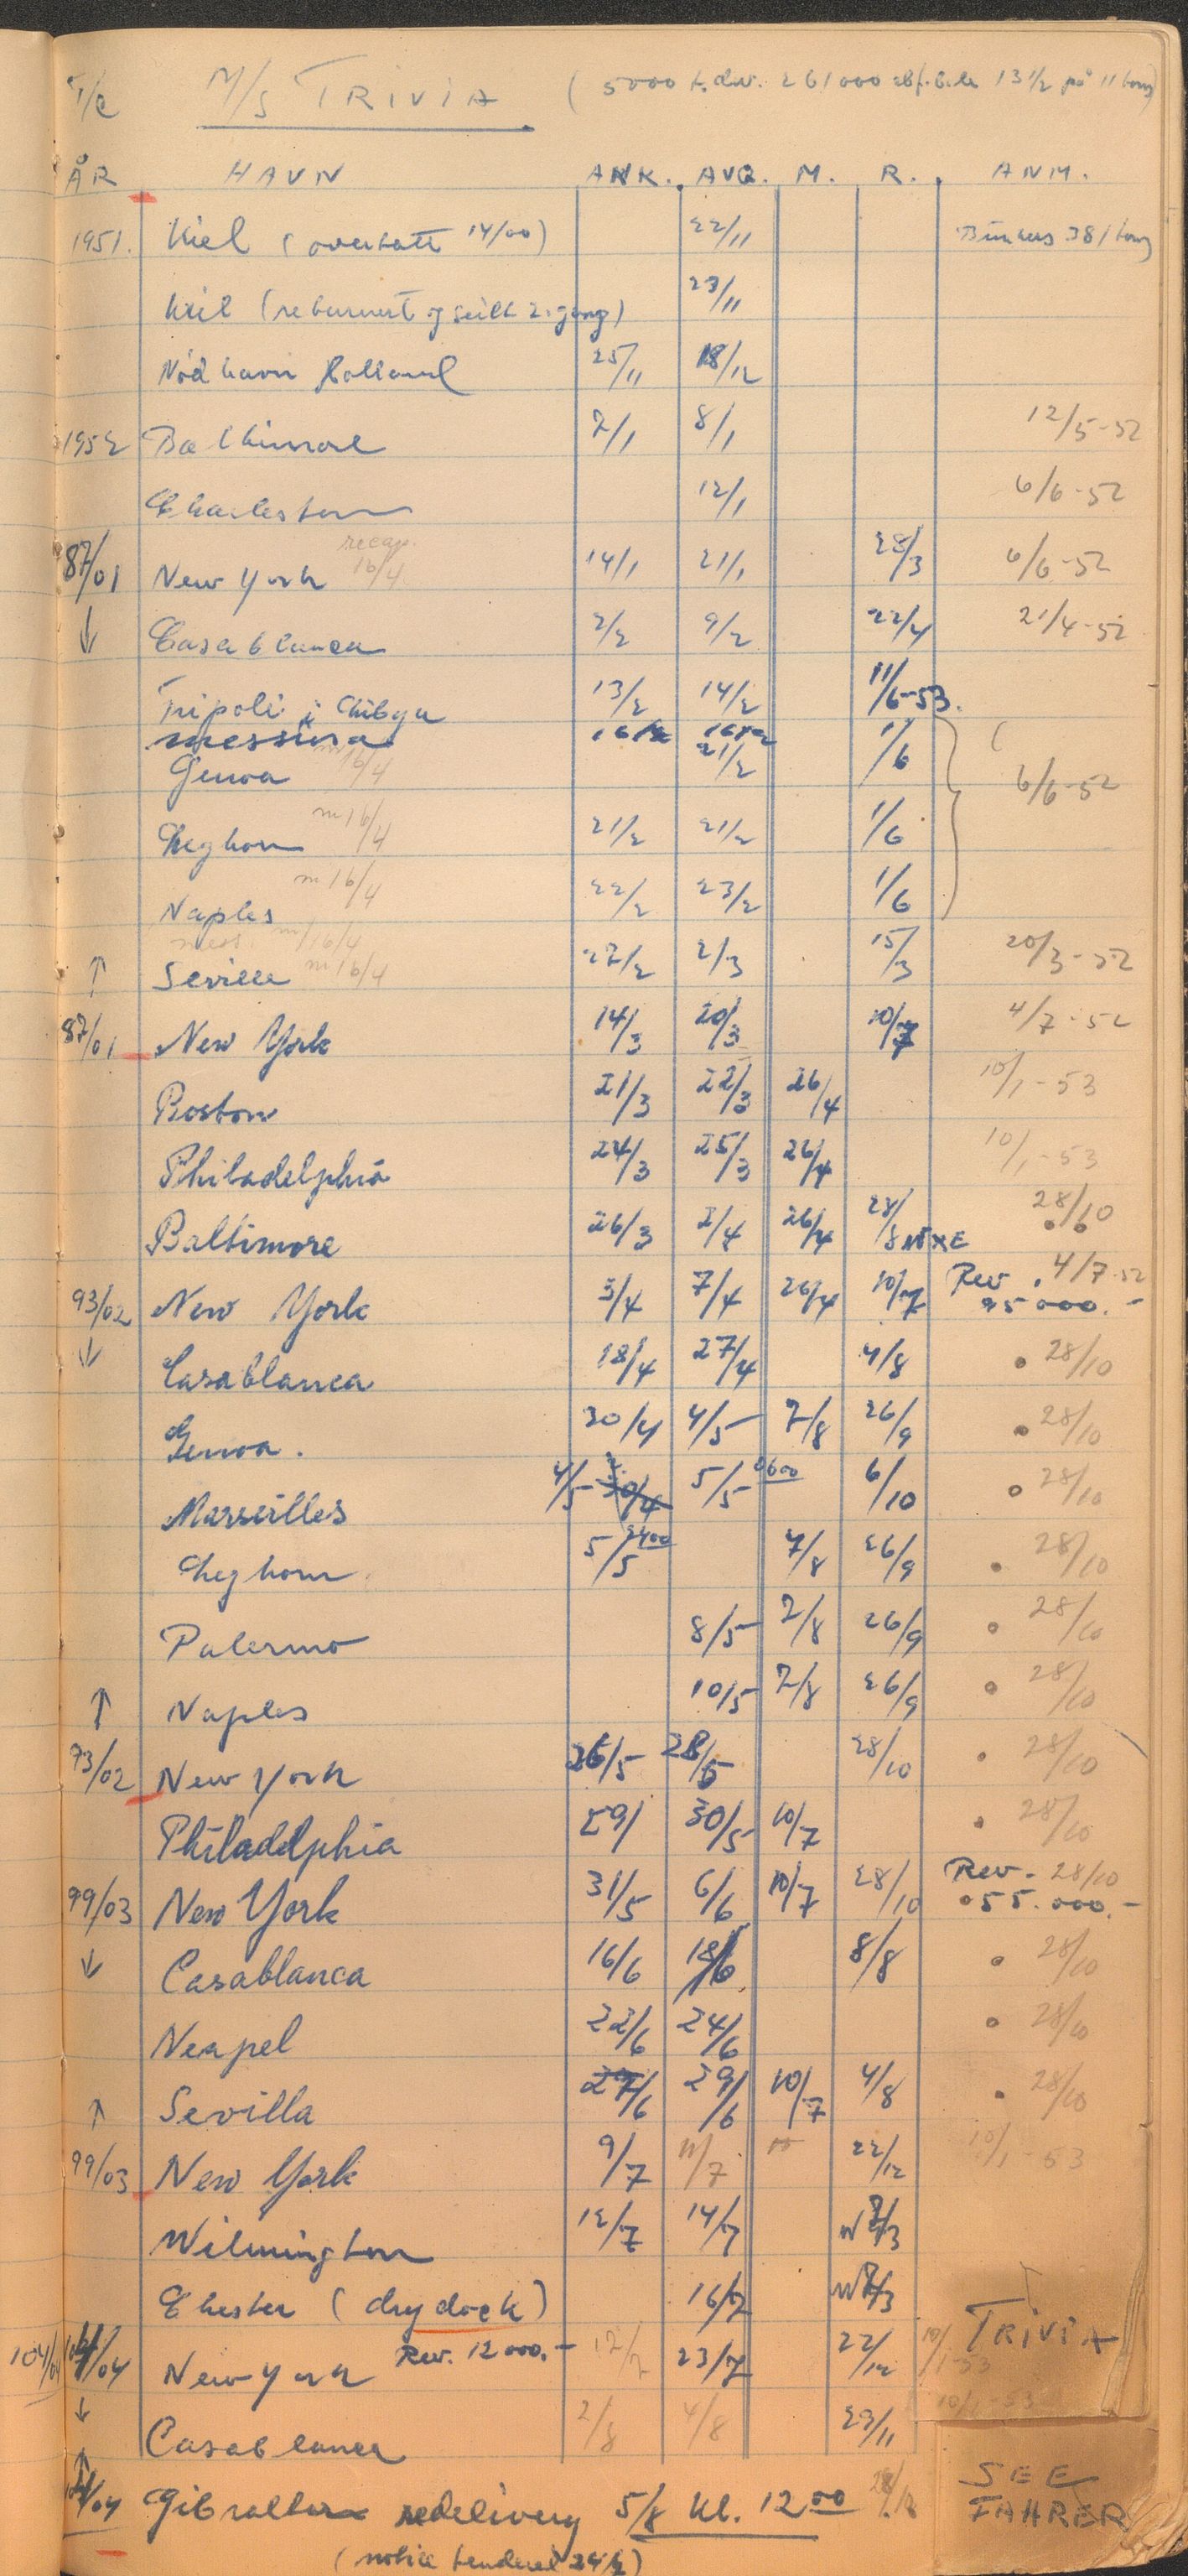 T/C M/S TRIVIA (5000 t.dw. 261000 cbf. b.le 13 1/2 på 11 tons)
ÅR HAVN ANK. AVG. M. R. ANM.
1951. Kiel (overtatt 14/00) 22/11 Bunkers 381 tons
Kiel (returnert og seilt 2. gang) 23/11
Nödhavn Holland 25/11 18/12
1952 Baltimore 7/1 8/1 12/5-52
Charleston 12/1 6/6-52
recap.
87/01 New York 16/4 14/1 21/1 28/3 6/6-52
↓ Casablanca 2/2 9/2 22/4 21/4-52
Tripoli i Libya 13/2 14/2 11/6-53.
messina 16/2 16/2 1/6
Genoa m 16/4 21/2 6/6-52
Leghorn m 16/4 21/2 21/2 1/6
Naples m 16/4 22/2 23/2 1/6
mess. m 16/4
↑ Seville m 16/4 27/2 2/3 15/3 20/3-52
87/01 New York 14/3 20/3 10/7 4/7-52
Boston 21/3 22/3 26/4 10/1-53
Philadelphia 24/3 25/3 26/4 10/1-53
Baltimore 26/3 2/4 26/4 28/8 28/10
93/02 New York 3/4 7/4 26/4 10/7 Rev. 4/7-52
95000.-
↓ Casablanca 18/4 27/4 4/8 28/10
Genoa. 30/4 4/5 7/8 26/9 28/10
Marseilles 4/5 30/4 5/5 0600 6/10 28/10
Leghorn 5/5 2400 7/8 26/9 28/10
Palermo 8/5 7/8 26/9 28/10
↑ Naples 10/5 7/8 26/9 28/10
93/02 New York 26/5 28/5 28/10 28/10
Philadelphia 29/ 30/5 10/7 28/10
99/03 New York 31/5 6/6 10/7 28/10 Rev. 28/10
55.000.-
↓ Casablanca 16/6 18/6 8/8 28/10
Neapel 22/6 24/6 28/10
↑ Sevilla 27/6 29/6 10/7 4/8 28/10
99/03 New York 9/7 11/7 22/12 10/1-53
Wilmington 12/7 14/7
Chester (drydock) 16/7
104/04 New York Rev. 12000.- 17/7 23/7 22/12 10/1-53 TRIVIA
↓ Casablanca 2/8 4/8 29/11 10/1-53
↑
104/04 Gibraltar redelivery 5/8 kl. 12 00
(notice tendered 24/7)
SEE
FAHRER